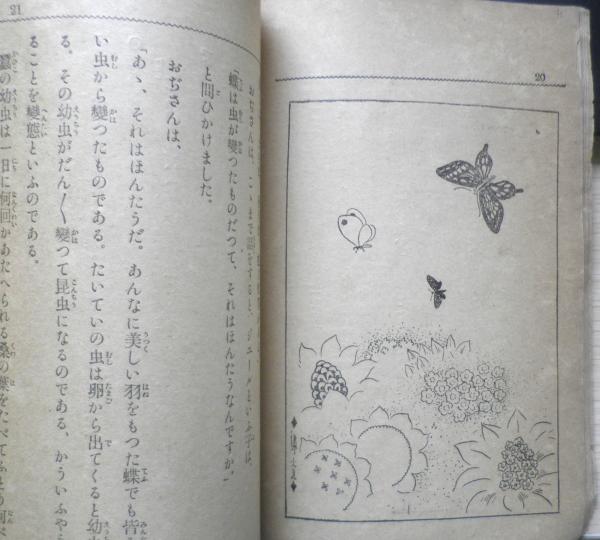 20
21
おぢさんは、こゝまで話をすると、ジュールといふ子は、
「蝶は虫が變つたものだつて、それはほんたうなんですか。」
と問ひかけました。
おぢさんは、
「あゝ、それはほんたうだ。あんなに美しい羽をもつた蝶でも皆
い虫から變つたものである。たいていの虫は卵から出てくると幼虫
る。その幼虫がだん〳〵變つて昆虫になるのである、かういふやう
ることを變態といふのである。
蠶の幼虫は一日に何回かあたへられる桑の葉をたべて